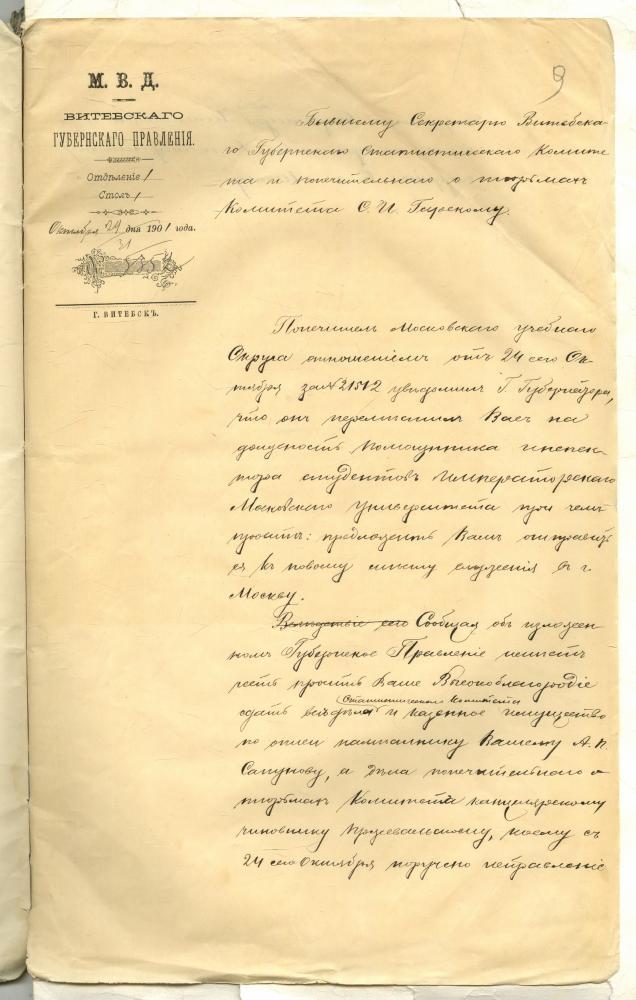 9
М. В. Д.
ВИТЕБСКАГО
ГУБЕРНСКАГО ПРАВЛЕНІЯ.
Отдѣленіе 1
Столъ 1
Октября 29 дня 1901 года.
31
Г. ВИТЕБСКЪ.
Бывшему Секретарю Витебска-
го Губернскаго Статистическаго Комите
та и попечительнаго о тюрьмахъ
Комитета С. И.
Попечитель Московскаго учебнаго
Округа отношеніемъ отъ 24 сего Ок-
тября за № 21512 увѣдомилъ Г. Губернатора,
что онъ перемѣстилъ Васъ на
должность Помощника инспек-
тора студентовъ Императорскаго
Московскаго Университета при чемъ
проситъ: предложить Вамъ отправить
ся къ новому мѣсту служенія въ г.
Москву.
Вслѣдствіе сего Сообщая объ изложен
номъ Губернское Правленіе имѣетъ
честь просить Ваше Высокоблагородіе
Статистическаго Комитета
сдать всѣ дѣла и казенное имущество
по описи намѣстнику Вашему А. П.
Сапунову, а дѣла попечительнаго о
тюрьмахъ Комитета канцелярскому
чиновнику Пржевальскому, коему съ
24 сего Октября поручено исправленіе